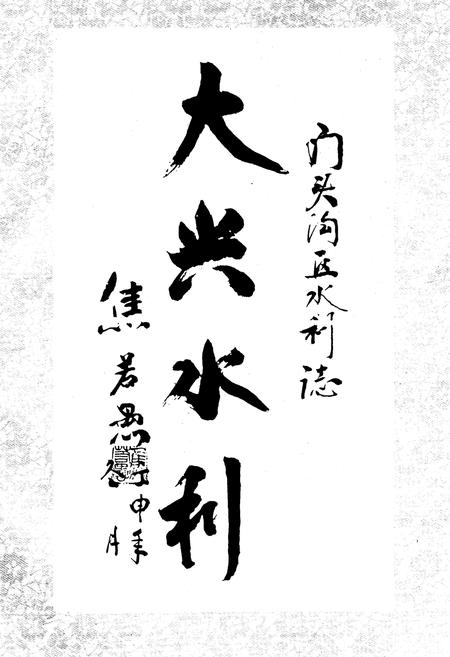 门头沟区水利誌
大兴水利
焦若愚
申年
月